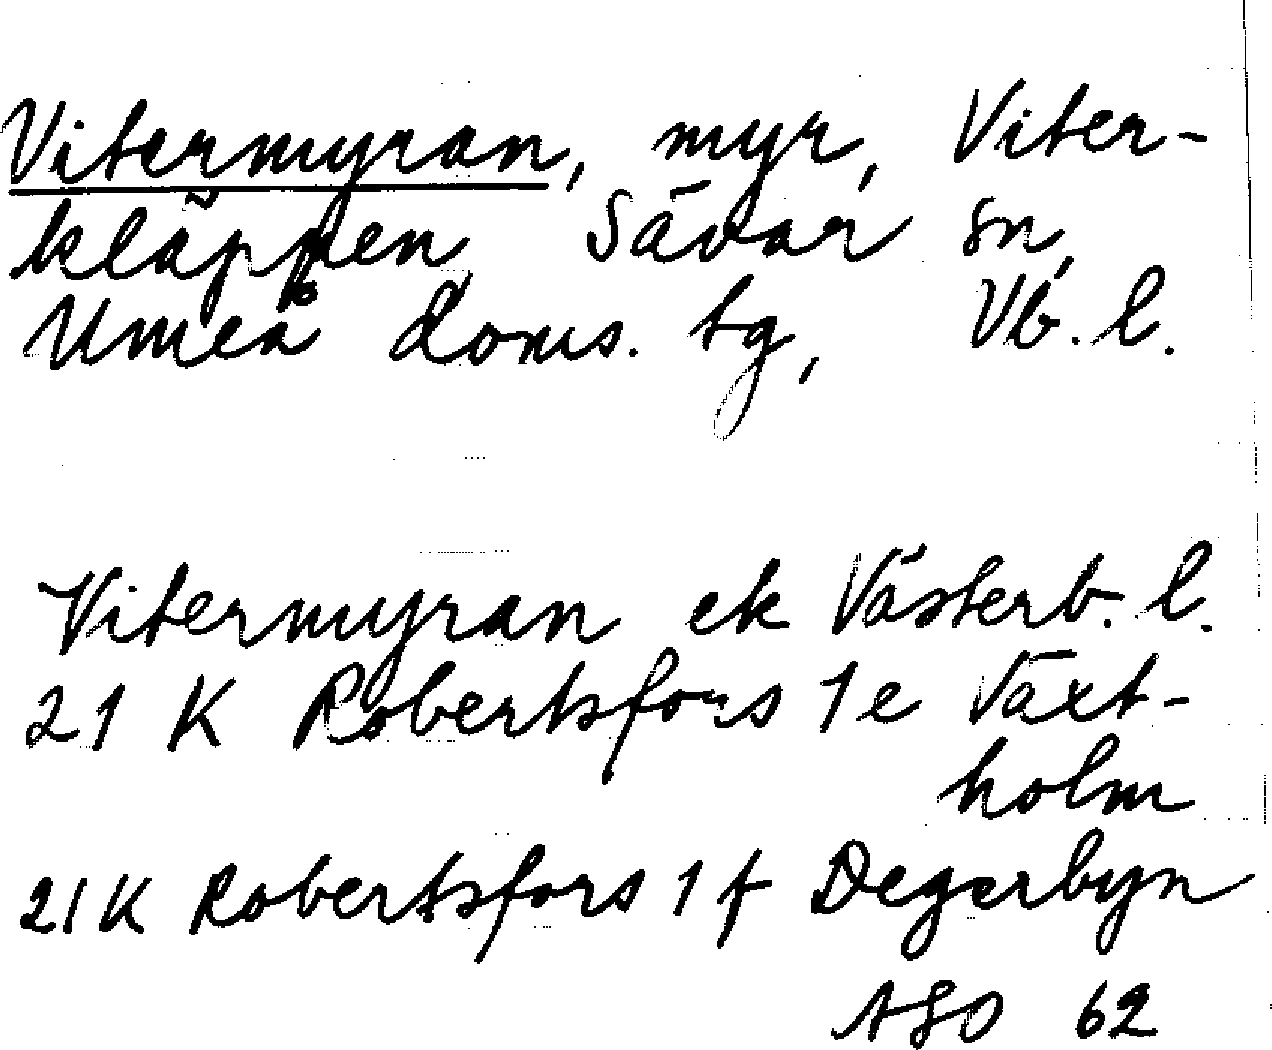 Vitermyran, myr, Viter-
kläppen, Sävar sn,
Umeå doms. tg, Vb. l.
Vitermyran ek Västerb. l.
21 K Robertsfors 1 e Växt-
holm
21 K Robertsfors 1 f Degerbyn
ASO 62